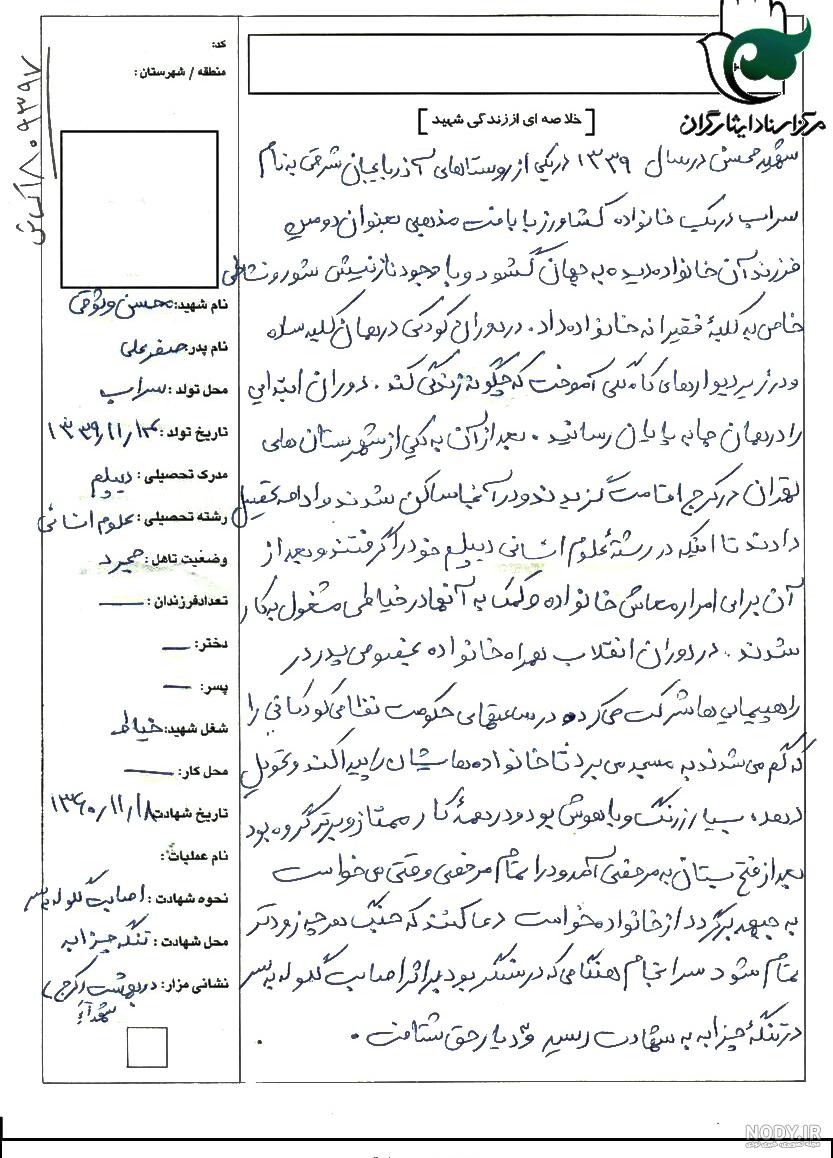 مرکز اسناد ایثارگران
[ خلاصه ای از زندگی شهید ]
شهید محسن در سال ۱۳۳۹ در یکی از روستاهای آذربایجان شرقی به نام
سراب در یک خانواده کشاورز با بافت مذهبی بعنوان دومین
فرزند آن خانواده دیده به جهان گشود و با وجود نازنینش شور و نشاطی
خاص به کلبهٔ فقیرانه خانواده داد. در دوران کودکی در همان کلبه ساده
و در زیر دیوارهای کاه گلی آموخت که چگونه زندگی کند. دوران ابتدایی
را در همان جا به پایان رسانید. بعد از آن به یکی از شهرستان های
تهران در کرج اقامت گزیدند و در آنجا ساکن شدند و ادامه تحصیل
دادند تا اینکه در رشتهٔ علوم انسانی دیپلم خود را گرفتند و بعد از
آن برای امرار معاش خانواده و کمک به آنها در خیاطی مشغول به کار
شدند. در دوران انقلاب همراه خانواده بخصوص پدر در
راهپیمایی ها شرکت می کرد در ساعتهای حکومت نظامی کودکانی را
که گم می شدند به مسجد می برد تا خانواده هایشان را پیدا کند و تحویل
دهد، بسیار زرنگ و باهوش بود و در همهٔ کار ممتاز و برتر گروه بود
بعد از فتح بستان به مرخصی آمد و در اتمام مرخصی وقتی می خواست
به جبهه برگردد از خانواده خواست دعا کنند که جنگ هر چه زودتر
تمام شود سرانجام هنگامی که در سنگر بود بر اثر اصابت گلوله به سر
در تنگهٔ چزابه به شهادت رسید و به دیار حق شتافت.
کد:
منطقه / شهرستان:
۱۸۰۹۳۹۷
نام شهید: محسن وثوقی
نام پدر: صفرعلی
محل تولد: سراب
تاریخ تولد: ۱۳۳۹/۱۱/۱۳
مدرک تحصیلی: دیپلم
رشته تحصیلی: علوم انسانی
وضعیت تاهل: مجرد
تعداد فرزندان: —
دختر: —
پسر: —
شغل شهید: خیاط
محل کار: —
تاریخ شهادت: ۱۳۶۰/۱۱/۱۸
نام عملیات:
نحوه شهادت: اصابت گلوله به سر
محل شهادت: تنگه چزابه
نشانی مزار: در بهشت (کرج)
شهدا
NODY.IR